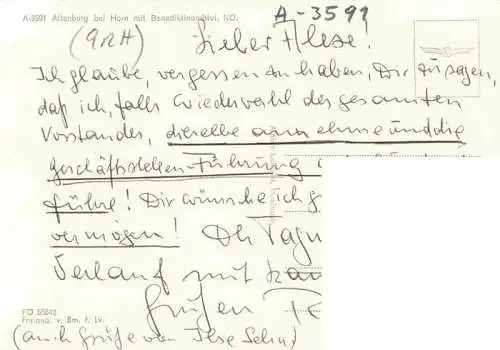 A-3591 Altenburg bei Horn mit Benediktinerabtei, NÖ.
A-3591
(GRH)
Lieber !
Ich glaube, vergessen zu haben, Dir zu sagen,
daß ich, falls Wiederwahl des gesamten
Vorstandes, dieselbe annehme und die
Geschäftsstellen-Führung
führe! Dir wünsche ich
vermögen! Tagu
Verlauf mit
Grüßen
FD 55643
Freigeg. v. Bm. f. Lv.
(auch Grüße von Ilse